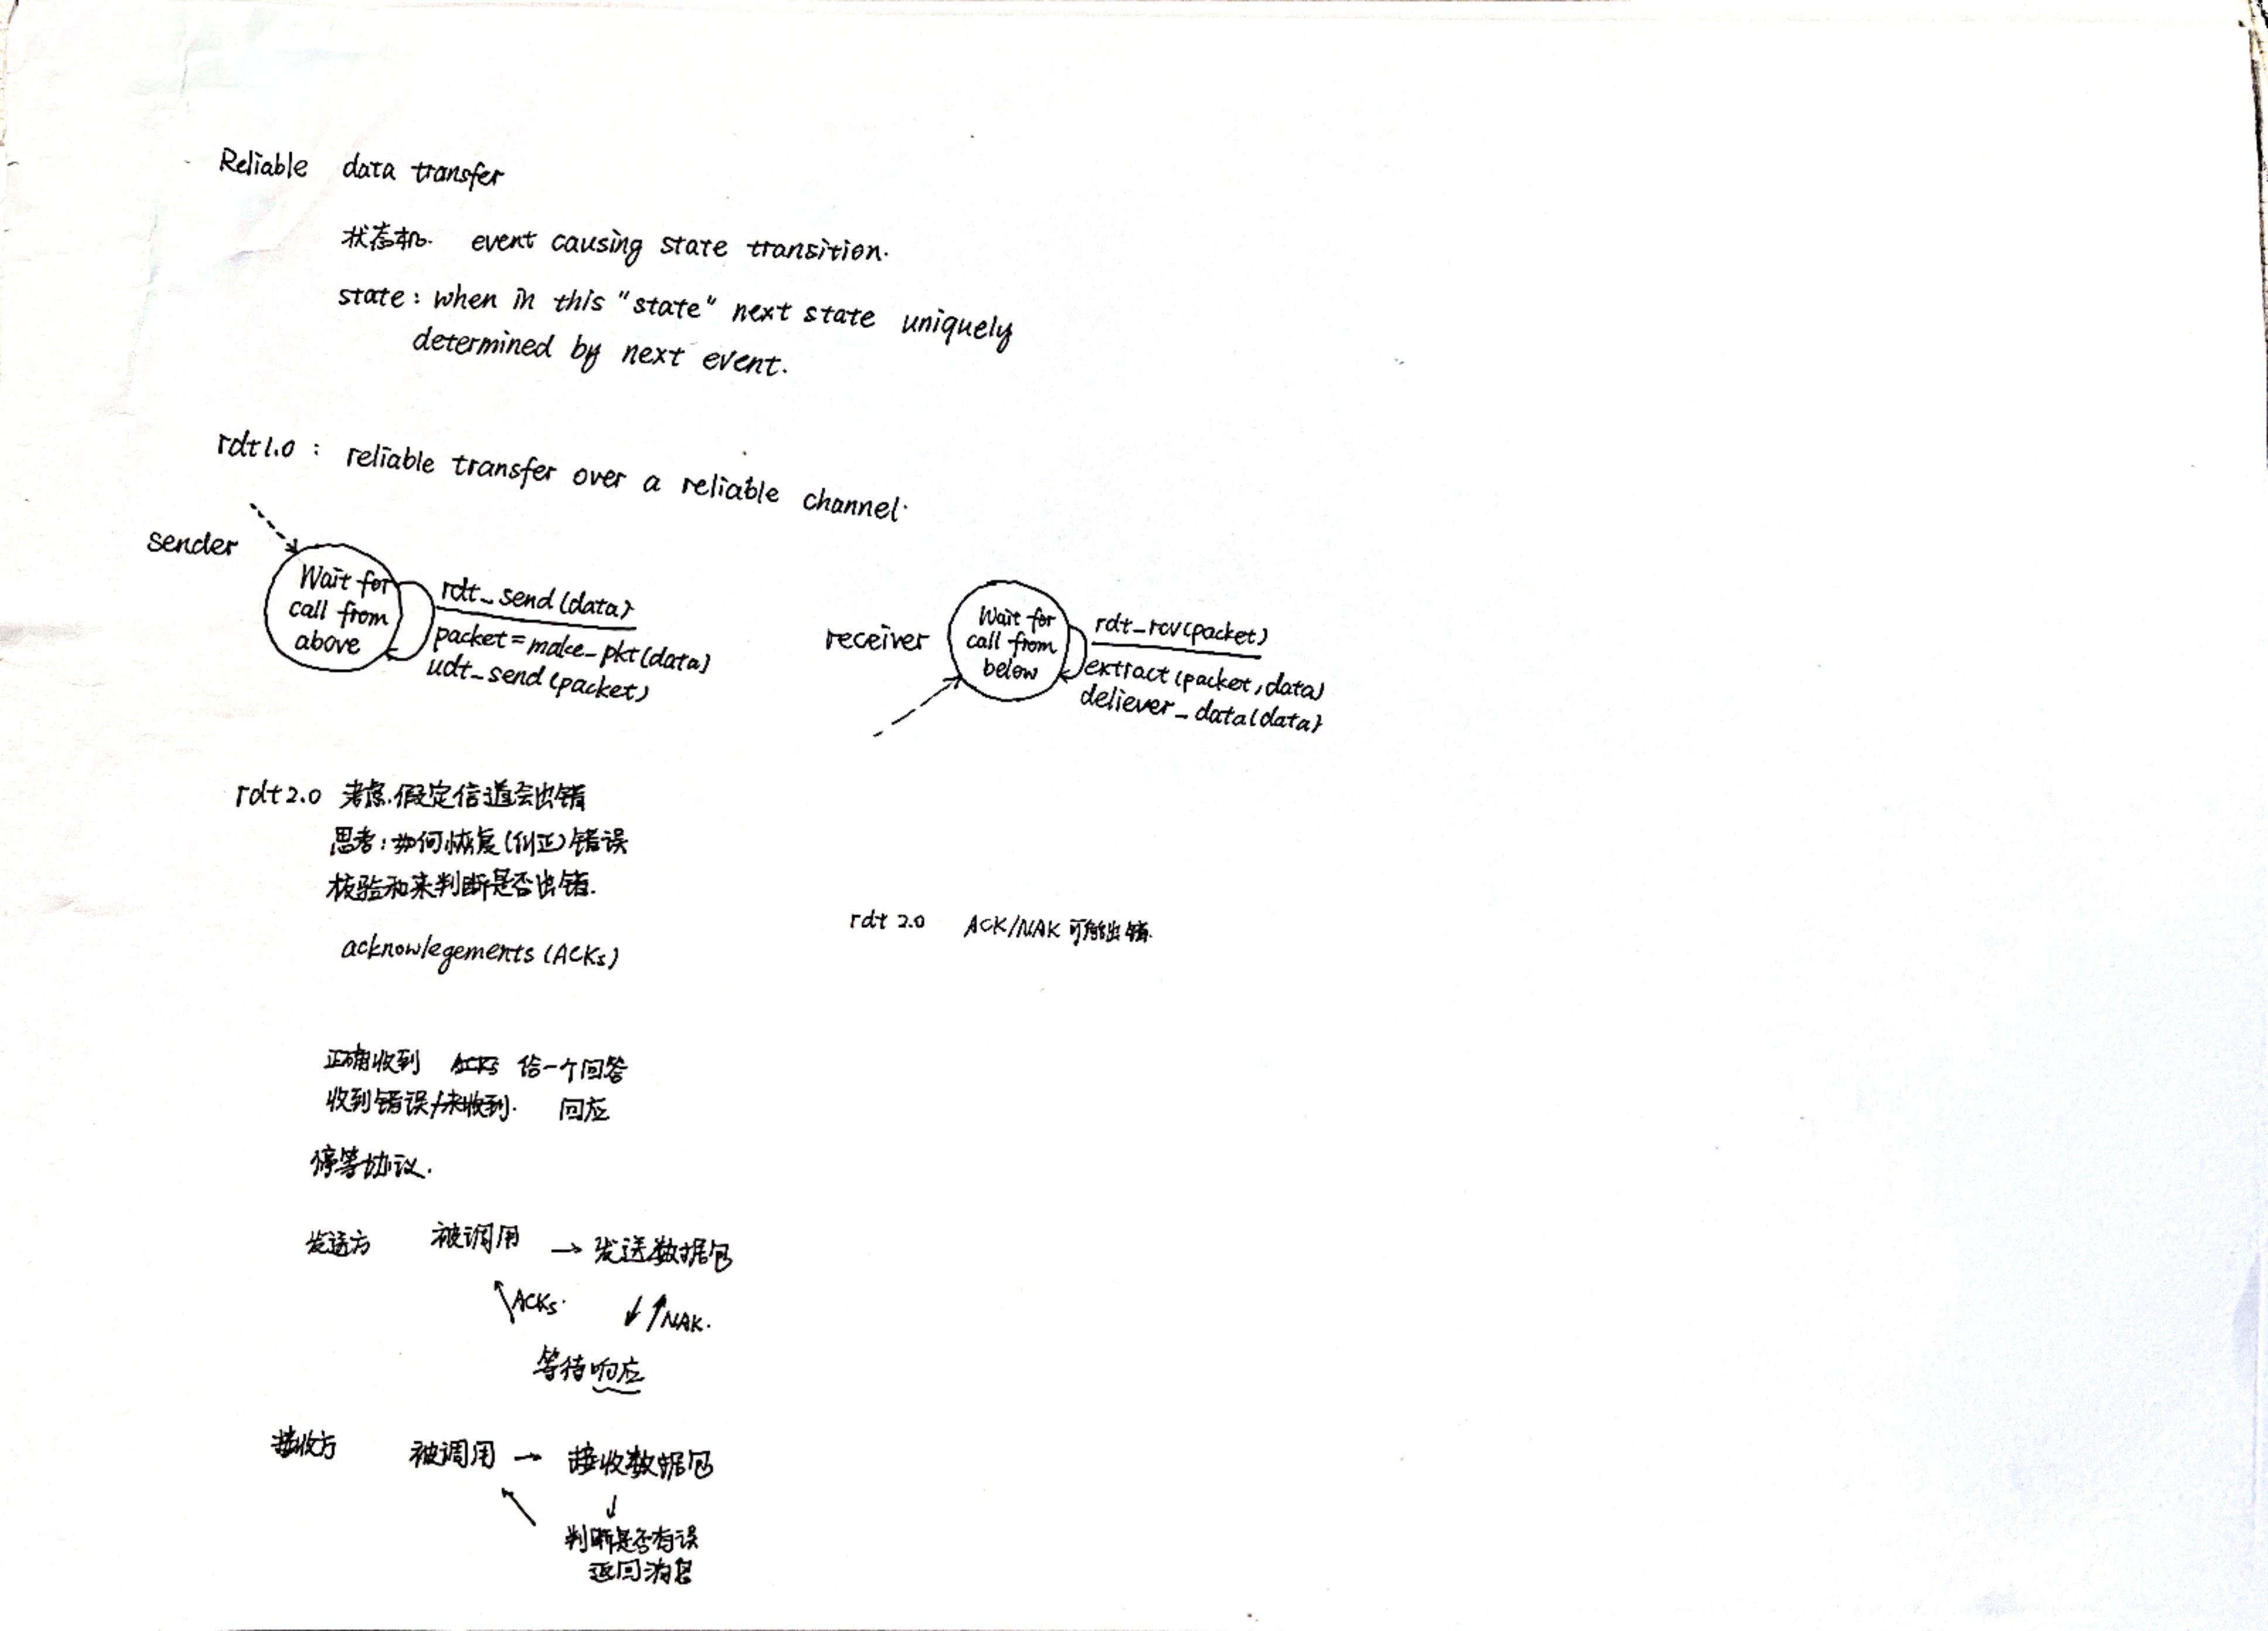 Reliable data transfer
状态机. event causing state transition.
state: when in this "state" next state uniquely
determined by next event.
rdt1.0: reliable transfer over a reliable channel.
sender
Wait for
call from
above
rdt_send(data)
packet=make_pkt(data)
udt_send(packet)
receiver
Wait for
call from
below
rdt_rcv(packet)
extract(packet,data)
deliever_data(data)
rdt2.0 考虑.假定信道会出错
思考:如何恢复(纠正)错误
核验和来判断是否出错.
acknowlegements (ACKs)
rdt 2.0 ACK/NAK 可能出错.
正确收到 给一个回答
收到错误/未收到. 回应
停等协议.
发送方 被调用 → 发送数据包
ACKs.
NAK.
等待响应
接收方 被调用 → 接收数据包
判断是否有误
返回消息